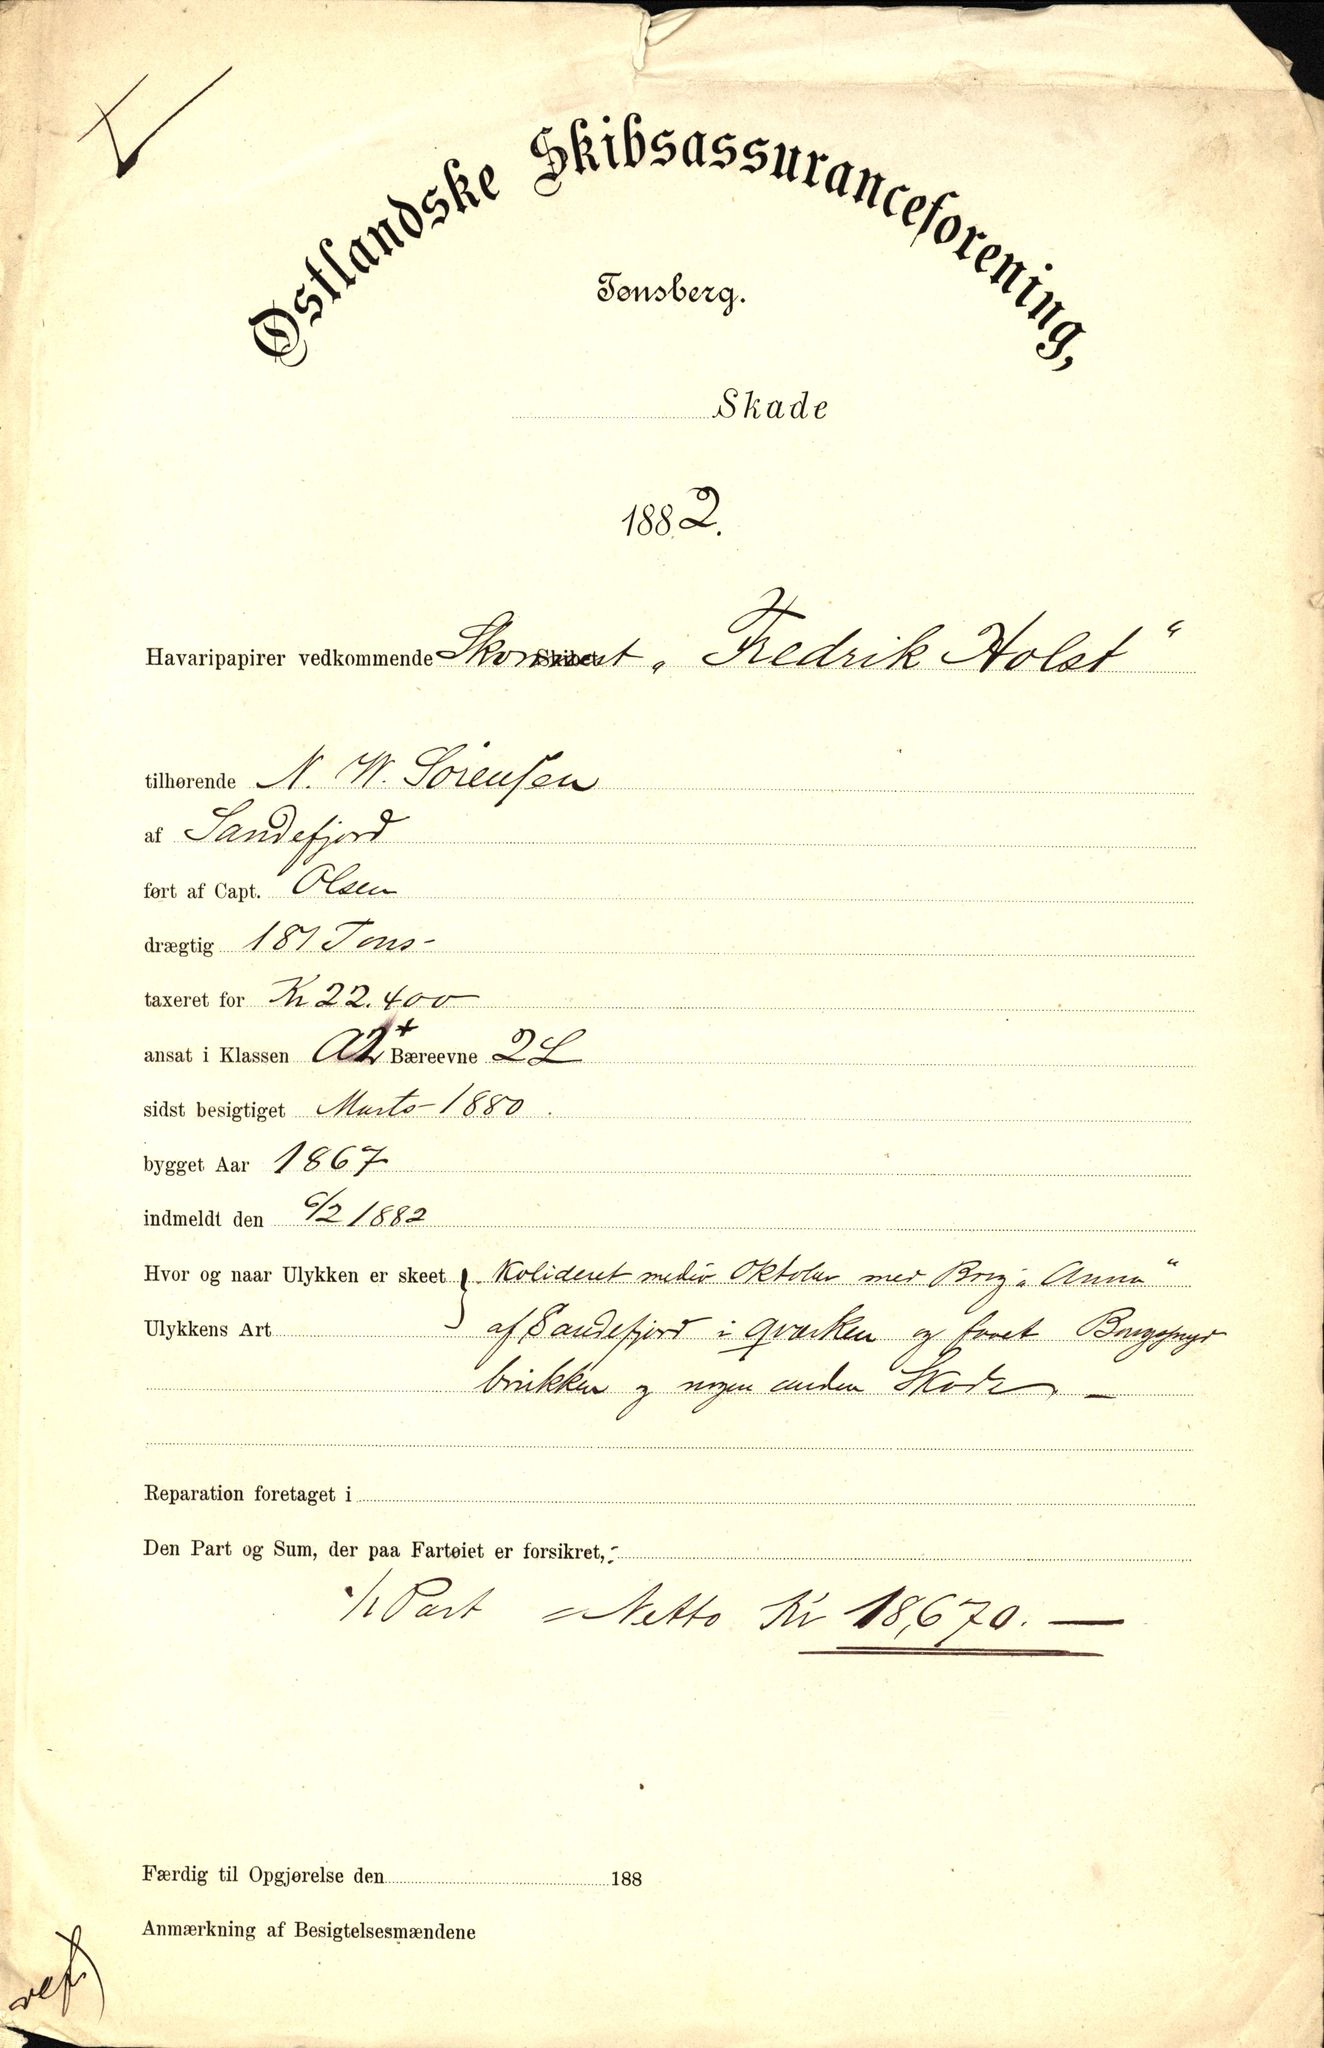 Østlandske Skibsassuranceforening,
Tønsberg.
Skade
1882.
Havaripapirer vedkommende Skonnert „Fredrik Holst“
tilhørende N. W. Sörensen
af Sandefjord
ført af Capt. Olsen
drægtig 187 Tons-
taxeret for Kr 22.400
ansat i Klassen A2+ Bæreevne 2 L
sidst besigtiget Marts 1880.
bygget Aar 1867
indmeldt den 6/2 1882
Hvor og naar Ulykken er skeet } Kolideret medio Oktober med Brig „Anna“
Ulykkens Art af Sandefjord i Qvarken og faaet
brukken og nogen anden Skade. —
Reparation foretaget i
Den Part og Sum, der paa Fartøiet er forsikret,:
1/1 Part = Netto Kr 18,670. —
Færdig til Opgjørelse den 188
Anmærkning af Besigtelsesmændene